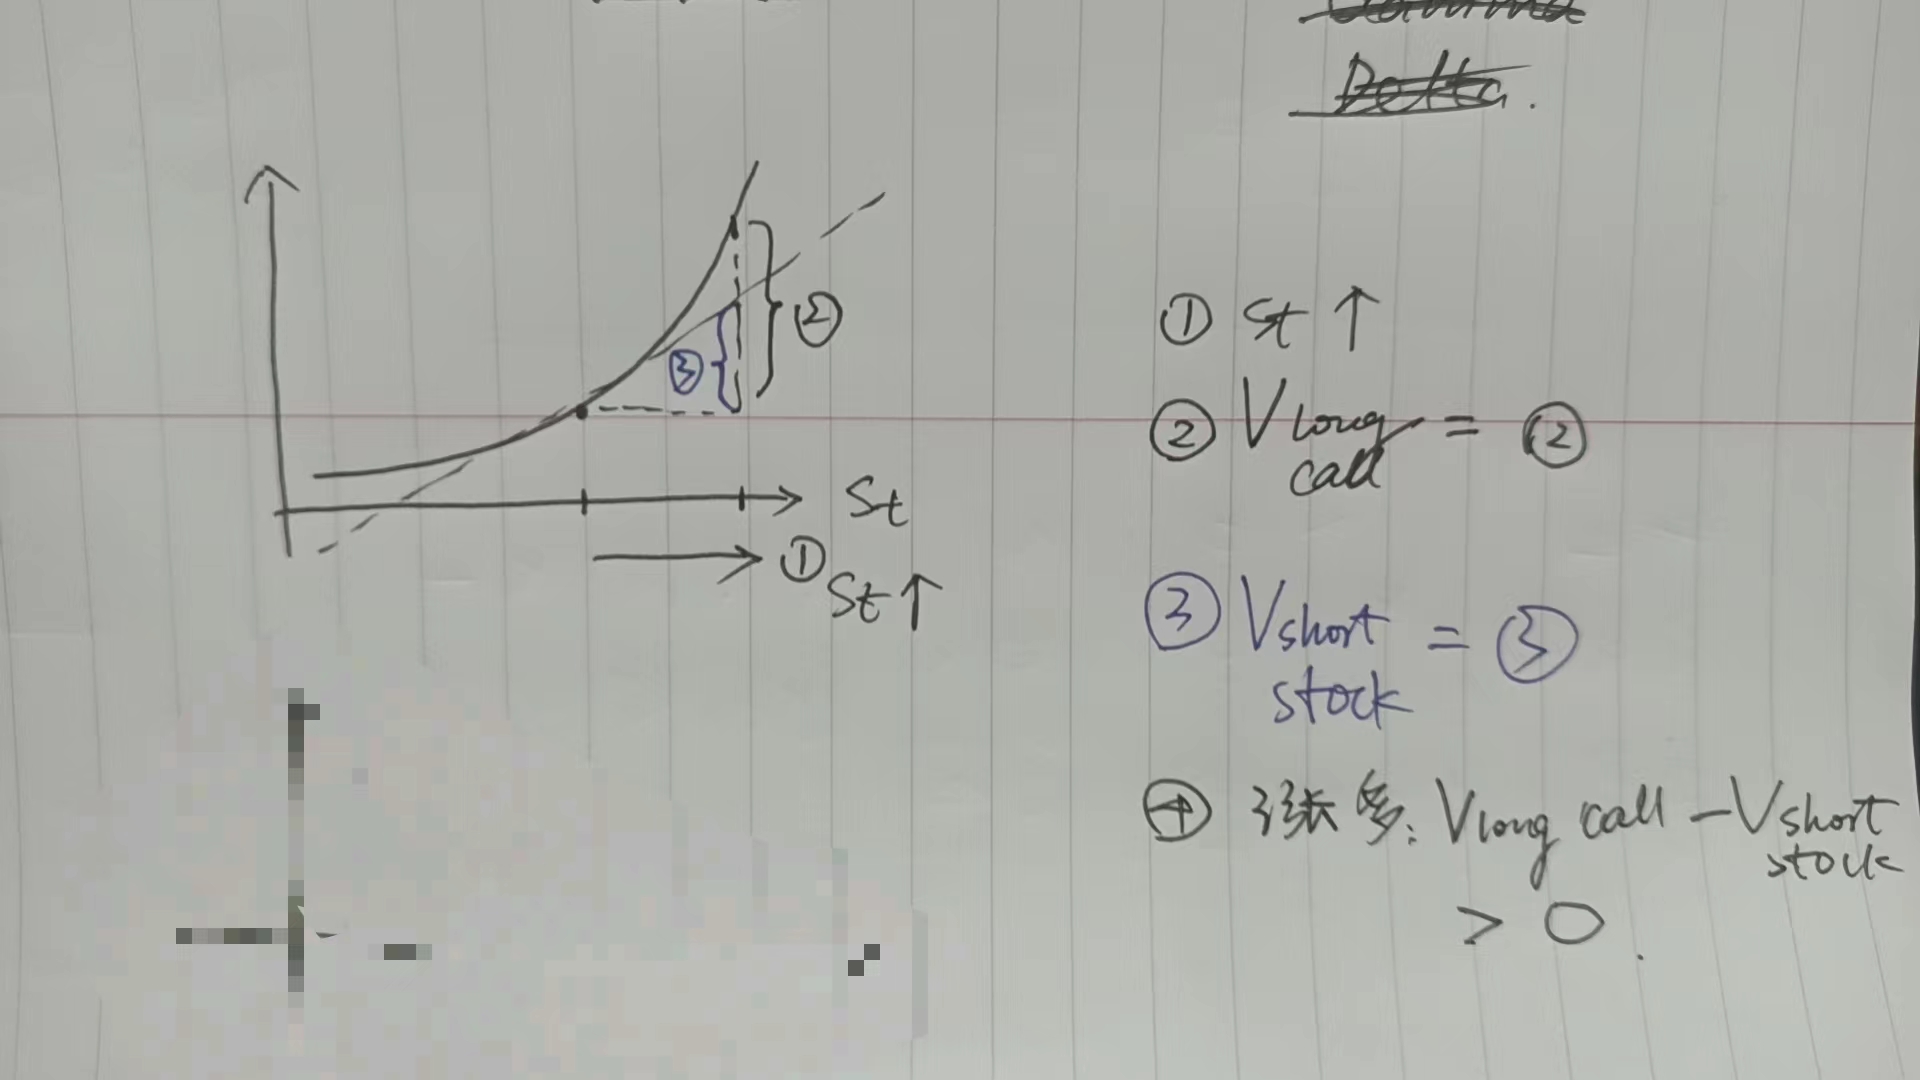 Delta.
②
③
St
①
St↑
① St ↑
② V long call = ②
③ V short stock = ③
④ 涨多: V long call - V short stock
> 0.